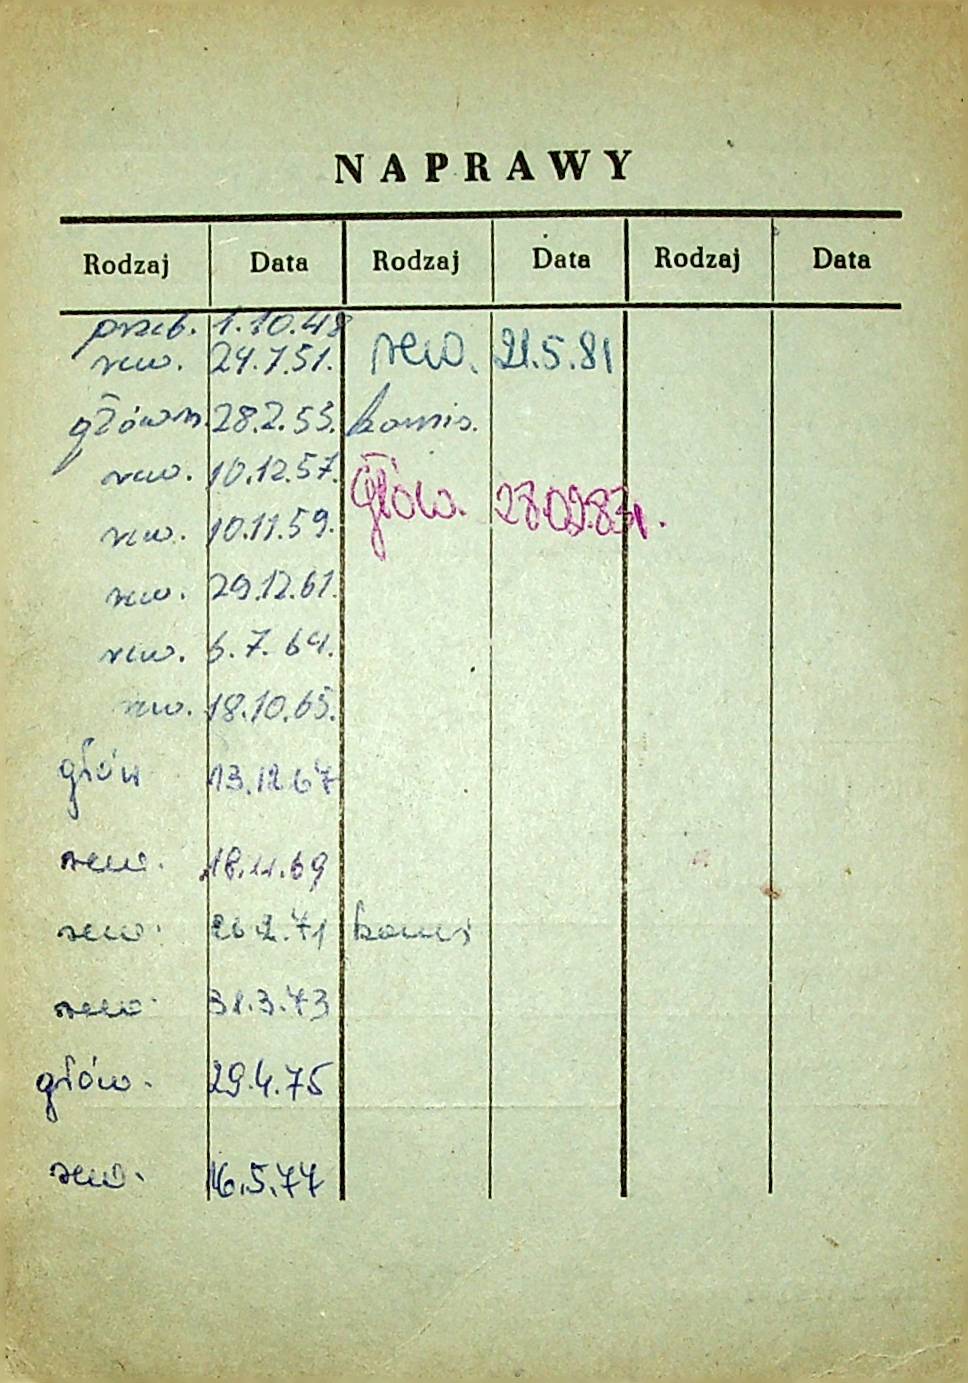 NAPRAWY
Rodzaj Data Rodzaj Data Rodzaj Data
przeb. 1.10.48
rew. 24.7.51. rew. 21.5.81
główn. 28.2.53. komis.
rew. 10.12.57. głów. 28.02.83r.
rew. 10.11.59.
rew. 29.12.61.
rew. 6.7.64.
rew. 18.10.65.
głów 13.12.67
rew. 18.11.69
rew. 26.2.71 komis
rew. 31.3.73
głów. 29.4.75
rew. 16.5.77